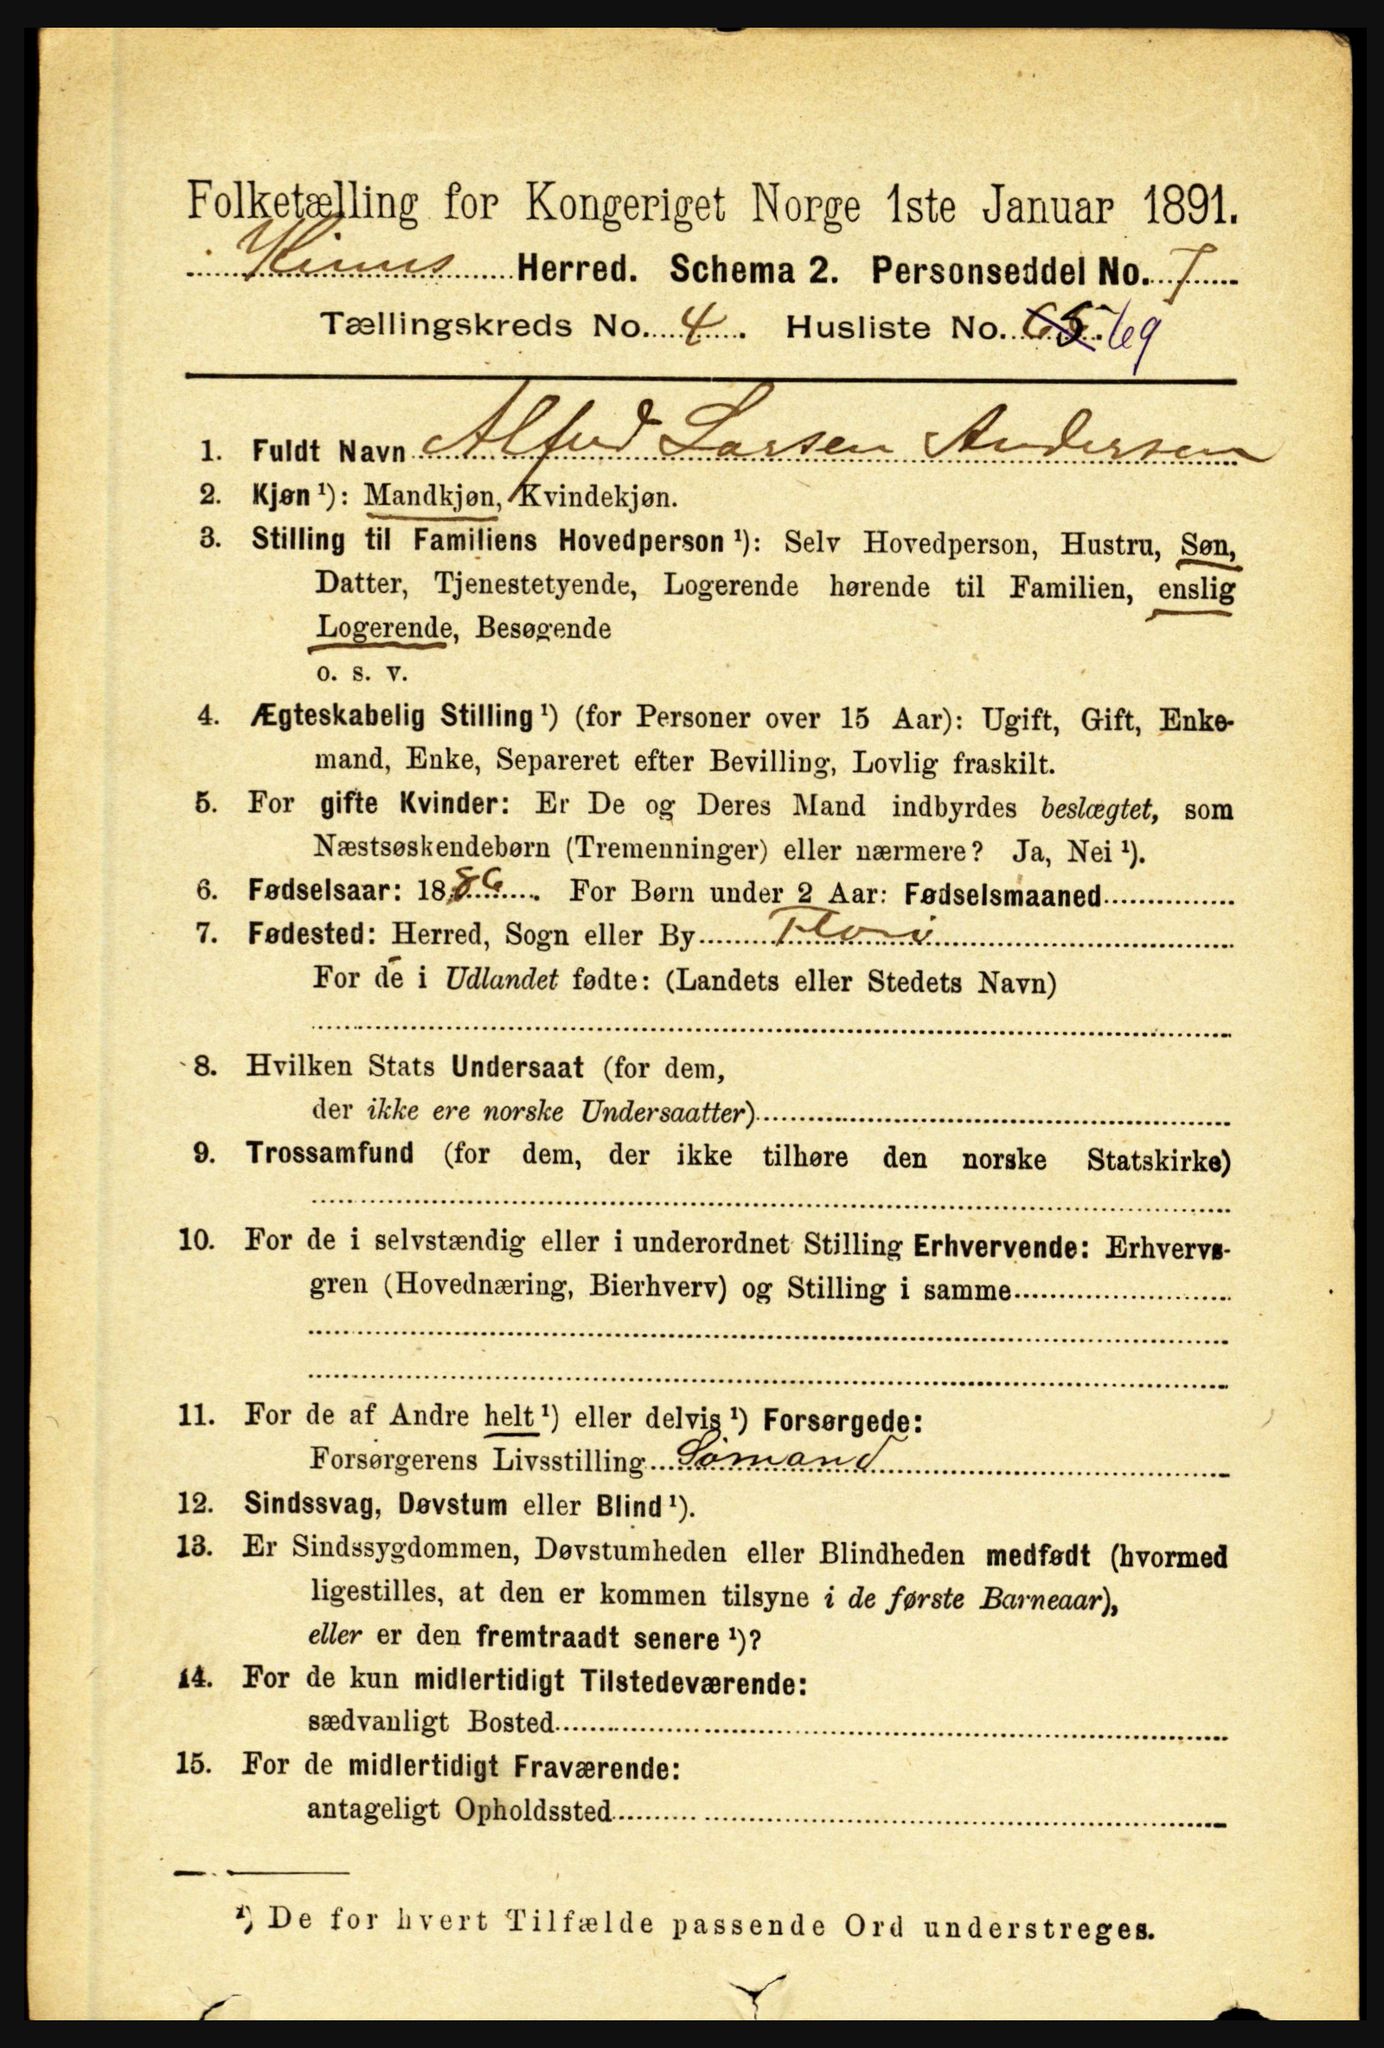 Folketælling for Kongeriget Norge 1ste Januar 1891.
Kinns Herred. Schema 2. Personseddel No. 7
Tællingskreds No. 4. Husliste No. 65. 69
1. Fuldt Navn Alfred Larsen Andersen
2. Kjøn ¹): Mandkjøn, Kvindekjøn.
3. Stilling til Familiens Hovedperson ¹): Selv Hovedperson, Hustru, Søn,
Datter, Tjenestetyende, Logerende hørende til Familien, enslig
Logerende, Besøgende
o. s. v.
4. Ægteskabelig Stilling ¹) (for Personer over 15 Aar): Ugift, Gift, Enke-
mand, Enke, Separeret efter Bevilling, Lovlig fraskilt.
5. For gifte Kvinder: Er De og Deres Mand indbyrdes beslægtet, som
Næstsøskendebørn (Tremenninger) eller nærmere? Ja, Nei ¹).
6. Fødselsaar: 1886. For Børn under 2 Aar: Fødselsmaaned
7. Fødested: Herred, Sogn eller By Florø
For de i Udlandet fødte: (Landets eller Stedets Navn)
8. Hvilken Stats Undersaat (for dem,
der ikke ere norske Undersaatter)
9. Trossamfund (for dem, der ikke tilhøre den norske Statskirke)
10. For de i selvstændig eller i underordnet Stilling Erhvervende: Erhvervs-
gren (Hovednæring, Bierhverv) og Stilling i samme
11. For de af Andre helt ¹) eller delvis ¹) Forsørgede:
Forsørgerens Livsstilling Sømand
12. Sindssvag, Døvstum eller Blind ¹).
13. Er Sindssygdommen, Døvstumheden eller Blindheden medfødt (hvormed
ligestilles, at den er kommen tilsyne i de første Barneaar),
eller er den fremtraadt senere ¹)?
14. For de kun midlertidigt Tilstedeværende:
sædvanligt Bosted
15. For de midlertidigt Fraværende:
antageligt Opholdssted
¹) De for hvert Tilfælde passende Ord understreges.